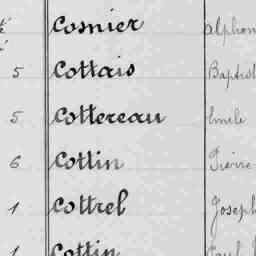 Cosnier Alphon
5 Cottais Baptist
5 Cottereau Emile
6 Cottin Pierre
1 Cottrel Joseph
1 Cottin Paul